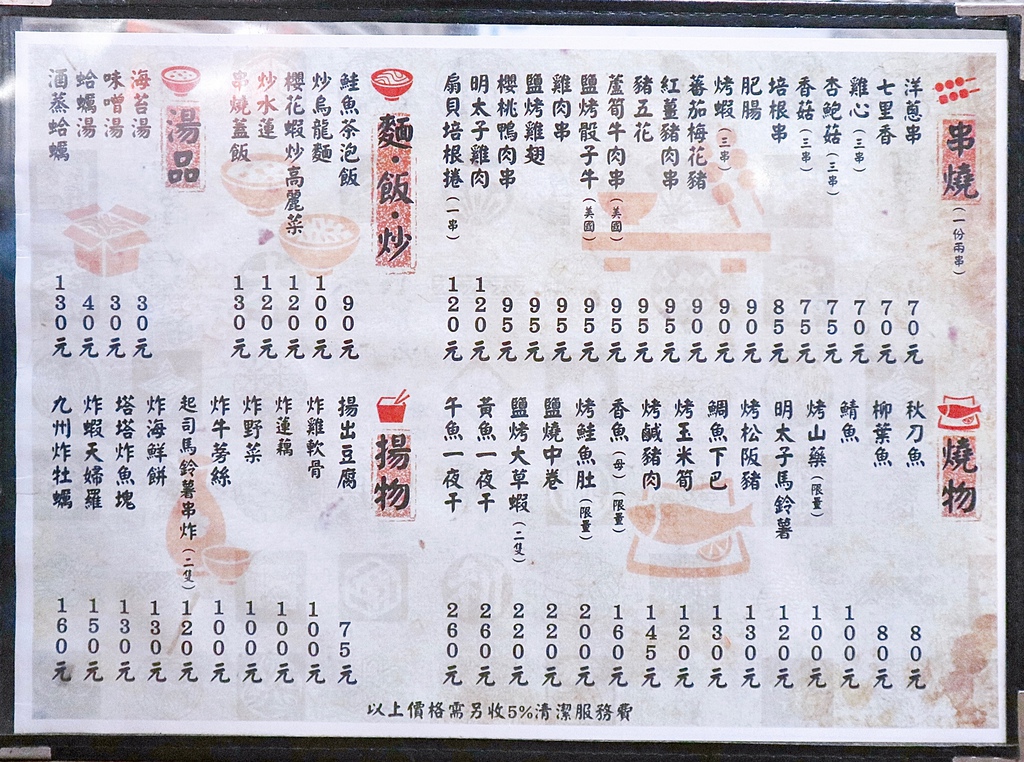 串燒(一份兩串)
洋蔥串 70元
七里香 70元
雞心(三串) 70元
杏鮑菇(三串) 75元
香菇(三串) 75元
培根串 85元
肥腸 90元
烤蝦(三串) 90元
蕃茄梅花豬 90元
紅薑豬肉串 95元
豬五花 95元
蘆筍牛肉串(美國) 95元
鹽烤骰子牛(美國) 95元
雞肉串 95元
鹽烤雞翅 95元
櫻桃鴨肉串 95元
明太子雞肉 120元
扇貝培根捲(一串) 120元
麵・飯・炒
鮭魚茶泡飯 90元
炒烏龍麵 100元
櫻花蝦炒高麗菜 120元
炒水蓮 120元
串燒蓋飯 130元
湯品
海苔湯 30元
味噌湯 30元
蛤蠣湯 40元
酒蒸蛤蠣 130元
燒物
秋刀魚 80元
柳葉魚 80元
鯖魚 100元
烤山藥(限量) 100元
明太子馬鈴薯 120元
烤松阪豬 130元
鯛魚下巴 130元
烤玉米筍 120元
烤鹹豬肉 145元
香魚(母)(限量) 160元
烤鮭魚肚(限量) 200元
鹽燒中卷 220元
鹽烤大草蝦(二隻) 220元
黃魚一夜干 260元
午魚一夜干 260元
揚物
揚出豆腐 75元
炸雞軟骨 100元
炸蓮藕 100元
炸野菜 100元
炸牛蒡絲 100元
起司馬鈴薯串炸(二隻) 120元
炸海鮮餅 130元
塔塔炸魚塊 130元
炸蝦天婦羅 150元
九州炸牡蠣 160元
以上價格需另收5%清潔服務費